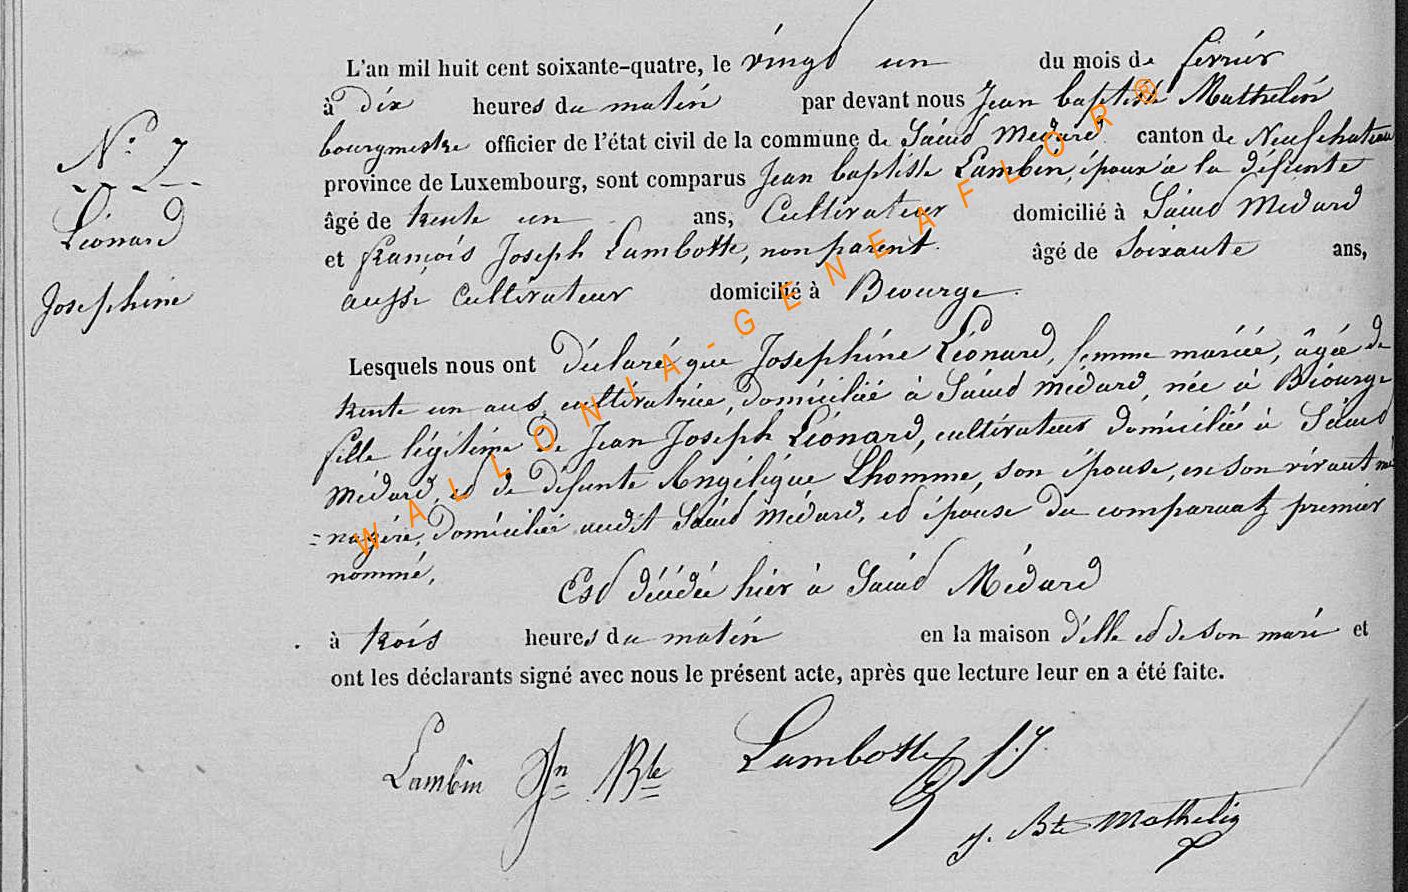 L'an mil huit cent soixante-quatre, le vingt un du mois de févriér
à dix heures du matin par devant nous Jean baptiste Mathelin
bourgmestre officier de l'état civil de la commune de Saint Médard canton de Neufchateau
province de Luxembourg, sont comparus Jean baptiste Lambin, époux à la défunte
âgé de trente un ans, Cultivateur domicilié à Saint Médard
et françois Joseph Lambotte, non parent. âgé de Soixante ans,
aussi Cultivateur domicilié à Biourge.
Nº 7
Léonard
Josephine
Lesquels nous ont Déclaré que Joséphine Léonard, femme mariée, âgée de
trente un ans, cultivatrice, domiciliée à Saint Médard, née à Biourge
fille légitime de Jean Joseph Léonard, cultivateur domicilié à Saint
Médard, et de défunte Angélique Lhomme, son épouse, en son vivant mé
=nagère, domiciliée audit Saint Médard, et épouse du comparant premier
nommé,
Est décédée hier à Saint Médard
à trois heures du matin en la maison d'elle et de son mari et
ont les déclarants signé avec nous le présent acte, après que lecture leur en a été faite.
Lambin Jn Bte Lambotte f. J.
J. Bte Mathelin
WALLONIA-GENEAFLOR®